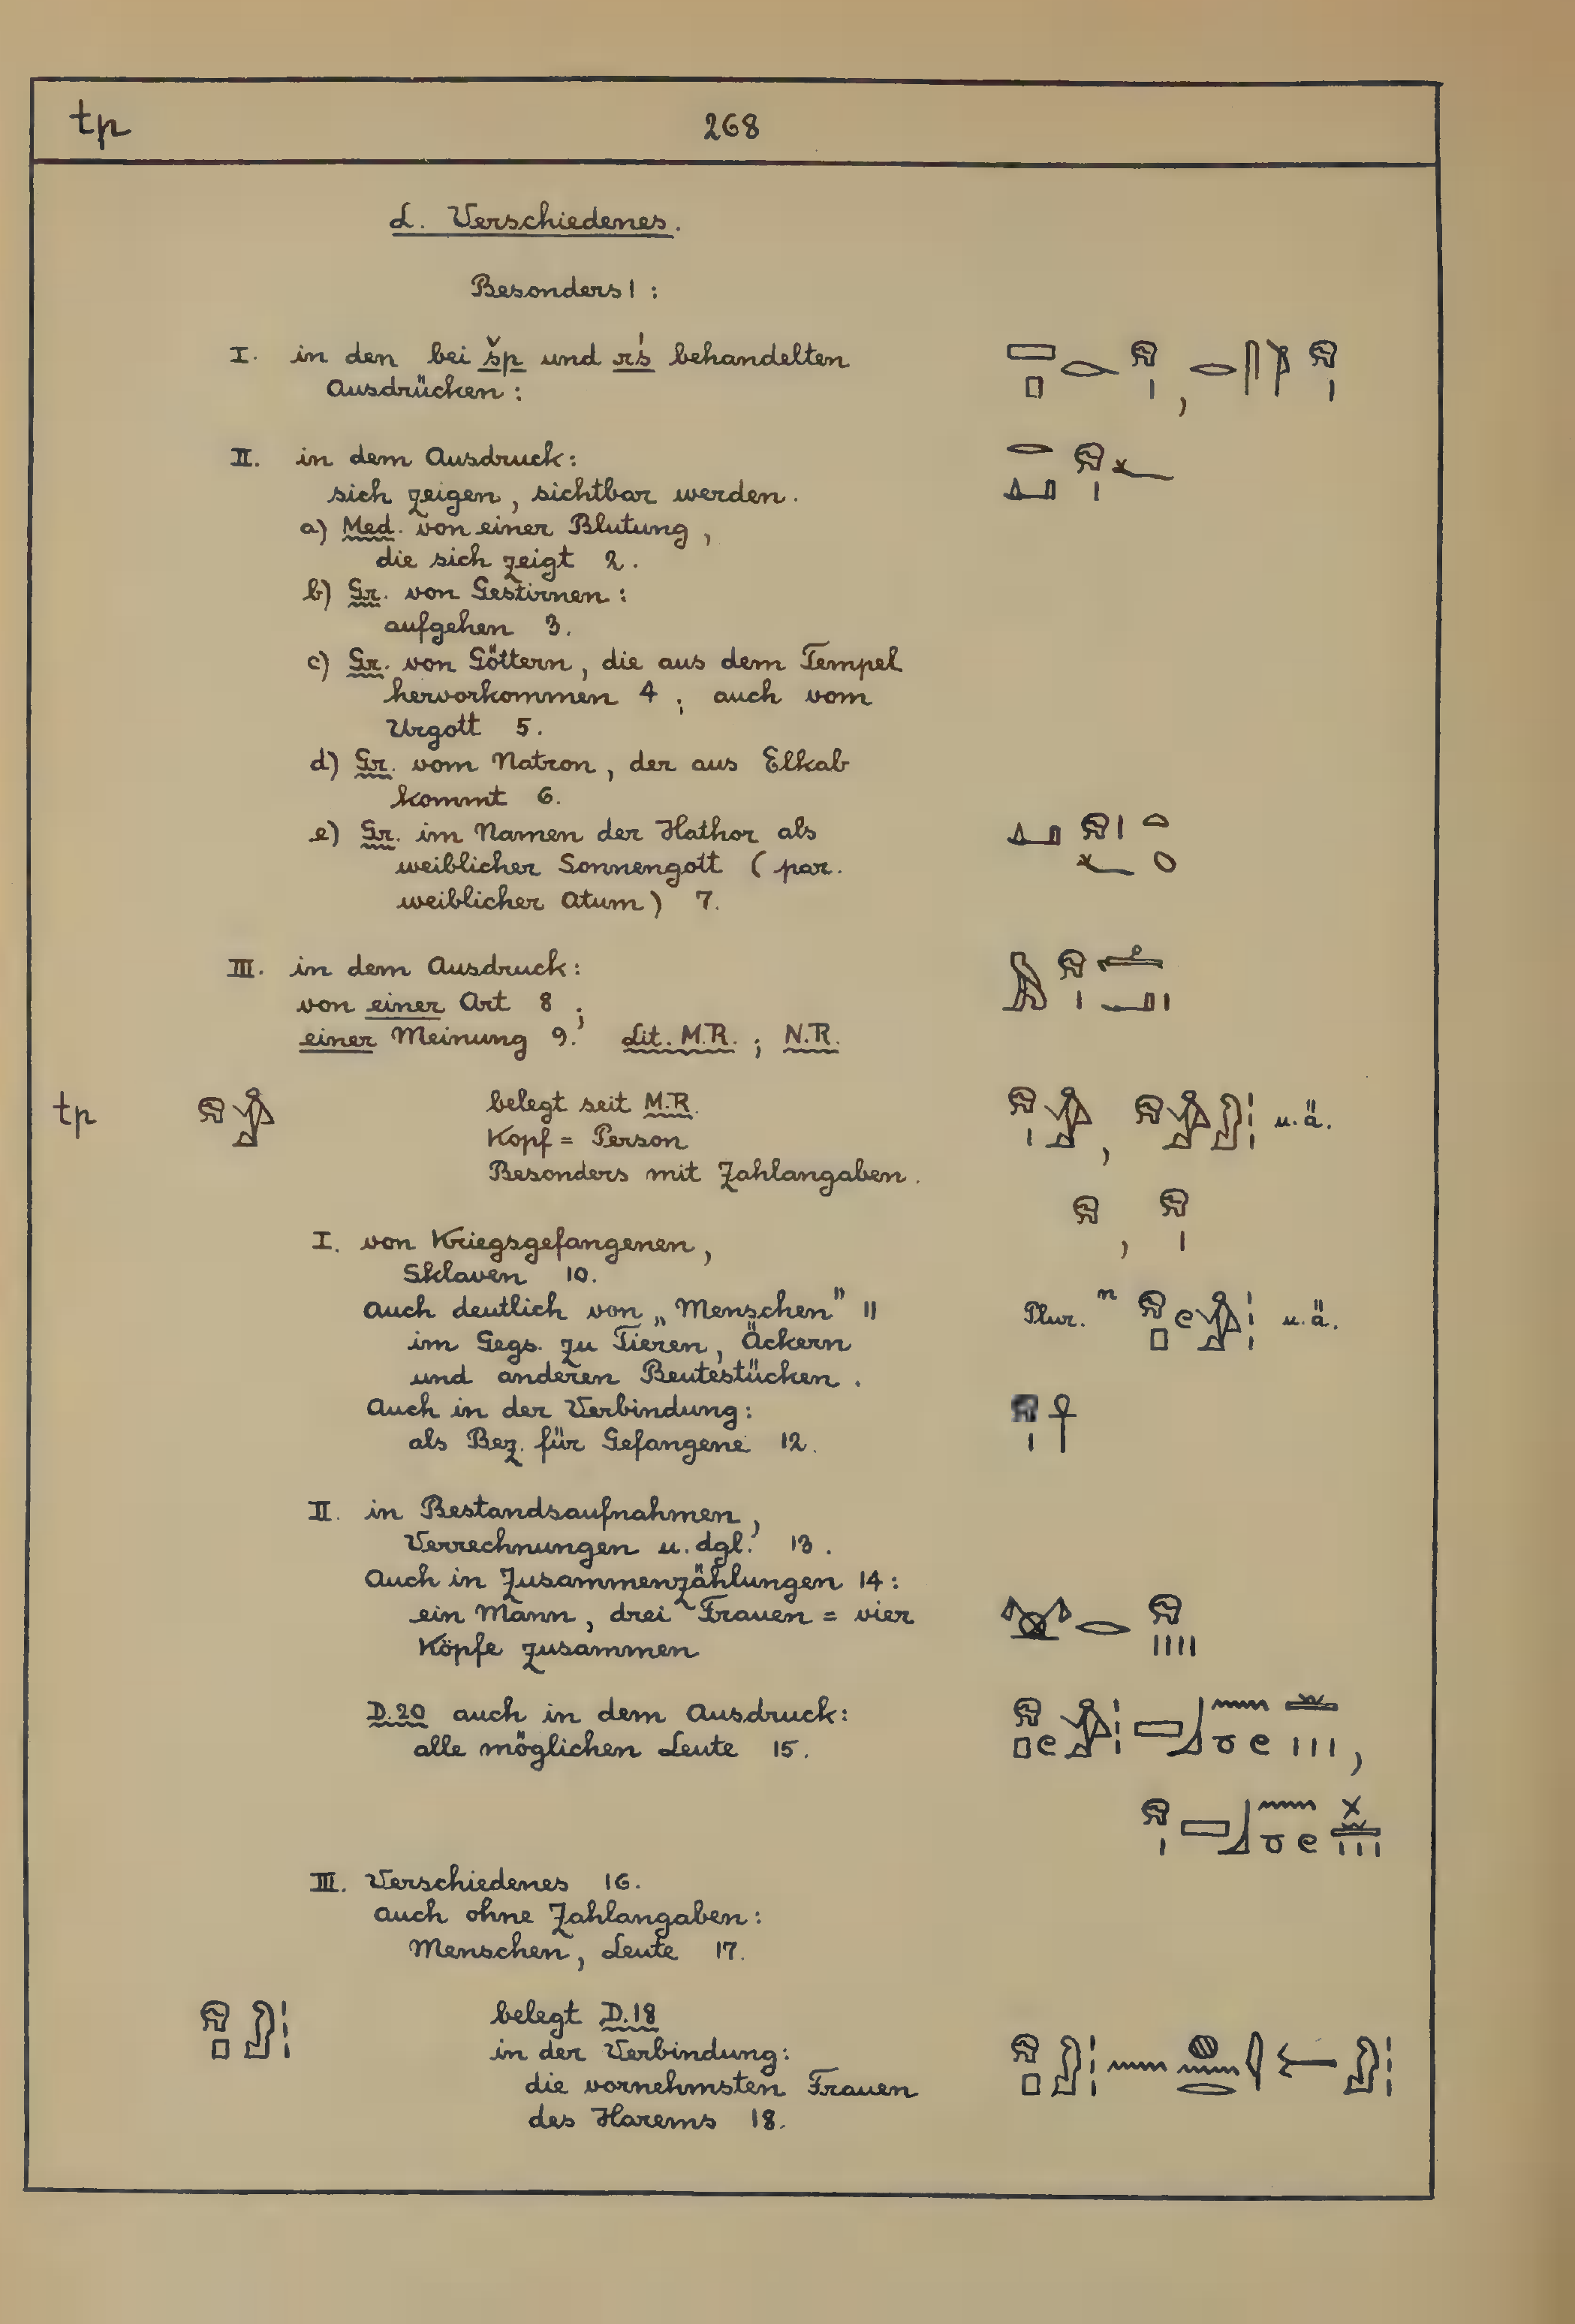 tp 268
L. Verschiedenes.
Besonders 1 :
I. in den bei šp und rś behandelten
Ausdrücken :
II. in dem Ausdruck:
sich zeigen, sichtbar werden.
a) Med. von einer Blutung,
die sich zeigt 2.
b) Gr. von Gestirnen :
aufgehen 3.
c) Gr. von Göttern, die aus dem Tempel
hervorkommen 4 ; auch vom
Urgott 5.
d) Gr. vom Natron, der aus Elkab
kommt 6.
e) Gr. im Namen der Hathor als
weiblicher Sonnengott ( par.
weiblicher Atum ) 7.
III. in dem Ausdruck:
von einer Art 8 ;
einer Meinung 9. Lit. M.R. ; N.R.
tp belegt seit M.R. u.ä.
Kopf = Person
Besonders mit Zahlangaben.
I. von Kriegsgefangenen,
Sklaven 10.
Auch deutlich von „Menschen" 11 Plur. n u.ä.
im Gegs. zu Tieren, Äckern
und anderen Beutestücken.
Auch in der Verbindung:
als Bez. für Gefangene 12.
II. in Bestandsaufnahmen,
Verrechnungen u. dgl. 13.
Auch in Zusammenzählungen 14 :
ein Mann, drei Frauen = vier
Köpfe zusammen
D.20 auch in dem Ausdruck:
alle möglichen Leute 15.
III. Verschiedenes 16.
auch ohne Zahlangaben:
Menschen, Leute 17.
belegt D.18
in der Verbindung:
die vornehmsten Frauen
des Harems 18.